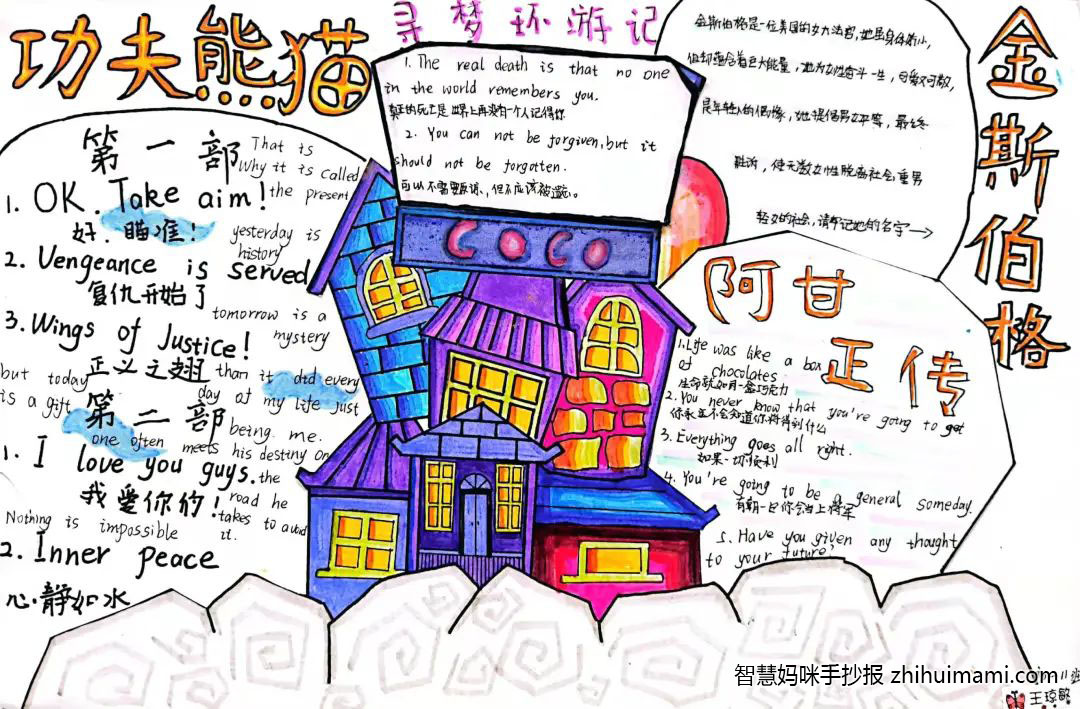 功夫熊猫
第一部
1. OK. Take aim!
好.瞄准!
2. Vengeance is served
复仇开始了
3. Wings of Justice!
正义之翅
第二部
1. I love you guys.
我爱你们!
2. Inner peace
心·静如水
That is
Why it is called
the present
yesterday is
history
tomorrow is a
mystery
but today
is a gift
than it did every
day of my life just
being me.
one often meets his destiny on
the
road he
takes to avoid
it.
Nothing is impossible
寻梦环游记
1. The real death is that no one
in the world remembers you.
真正的死亡是世界上再没有一个人记得你
2. You can not be forgiven, but it
should not be forgotten.
可以不需要原谅,但不应该被遗忘。
COCO
金斯伯格
金斯伯格是一位美国的女大法官,她虽身体瘦小,
但却蕴含着巨大能量,她为女性奋斗一生,
是年轻人的偶像,她提倡男女平等,最终
胜诉,使无数女性脱离社会重男
轻女的社会,请牢记她的名字→
阿甘正传
1. Life was like a box
of chocolates.
生命就如同一盒巧克力
2. You never know that you're going to get
你永远不会知道你将得到什么
3. Everything goes all right.
如果一切顺利
4. You're going to be a general someday.
有朝一日你会当上将军
5. Have you given any thought
to your future?
智慧妈咪手抄报 zhihuimami.com